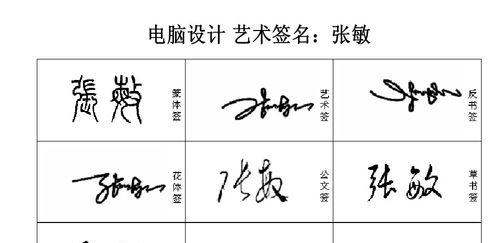 电脑设计 艺术签名：张敏
張敏 篆体签
张敏 艺术签
张敏 反书签
张敏 花体签
张敏 公文签
张敏 草书签